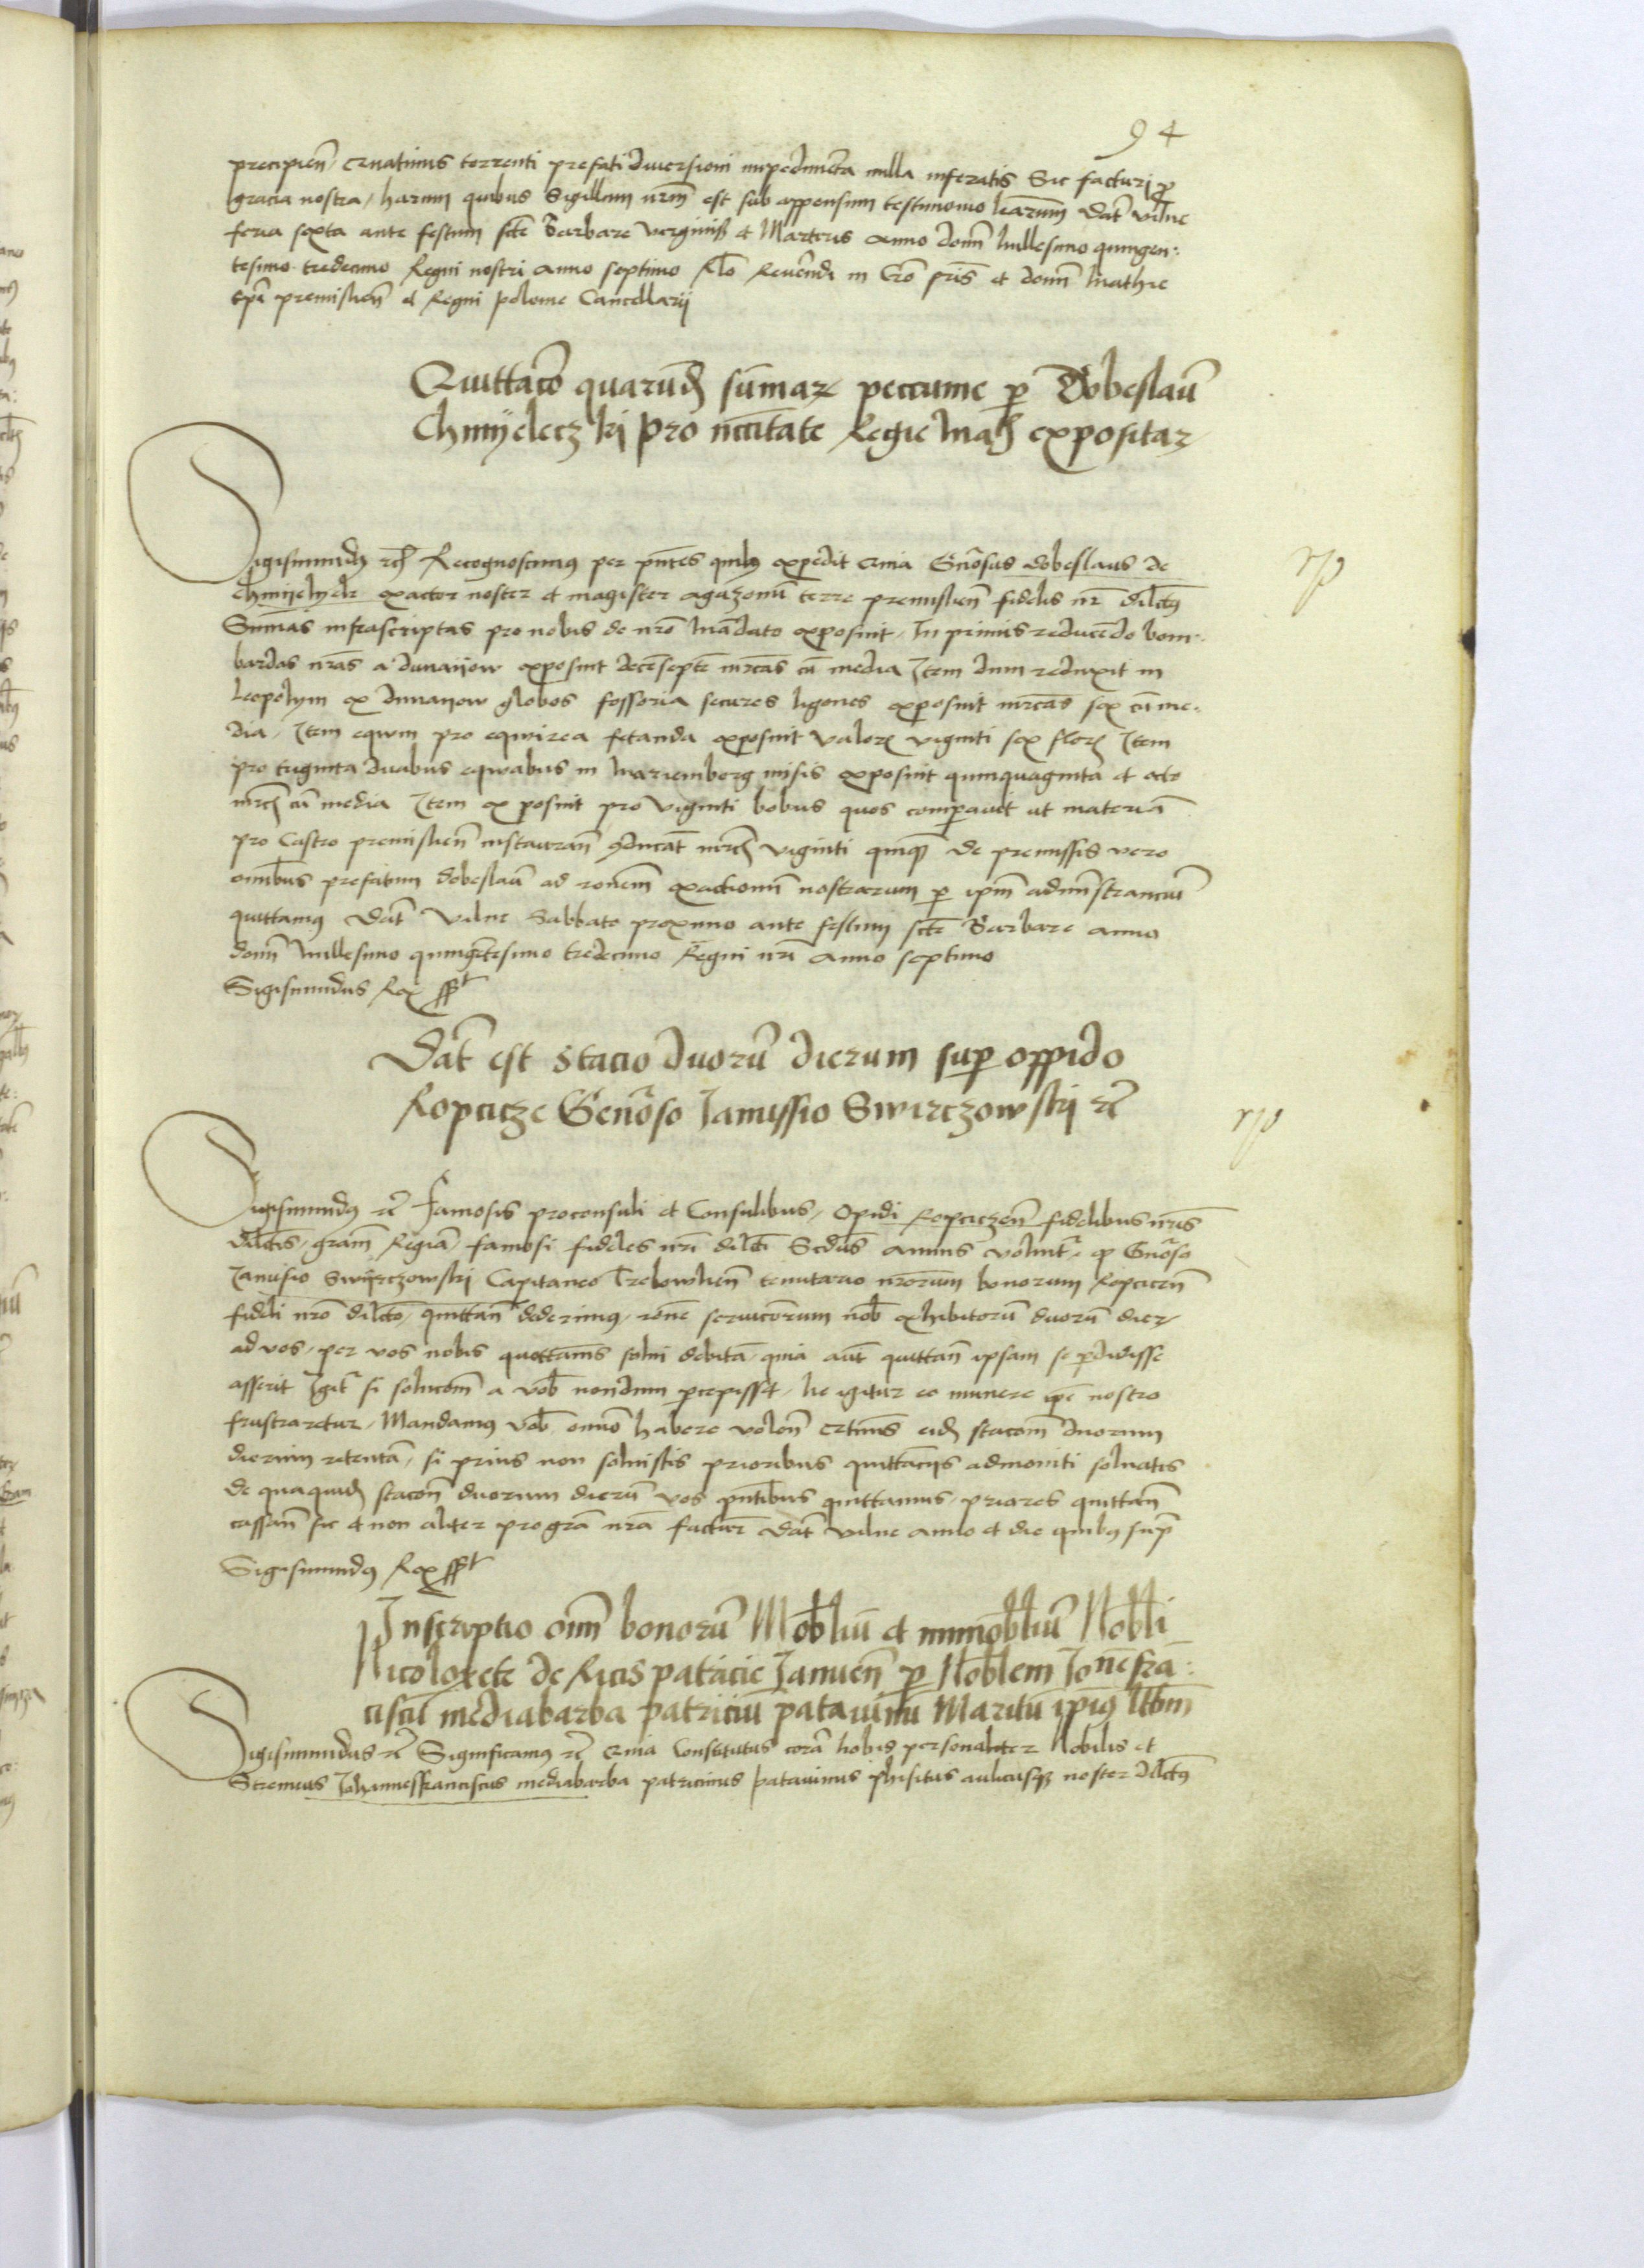 94
precipien̄ quatinus torrenti prefati diversioni impedimenta nulla inferatis Sic facturi ꝓ
gracia nostra, harum quibus Sigillum nr̄m est sub appensum testimonio lr̄arum Dat̄ Vilne
feria sexta ante festum scē Barbare virginis et Martiris Anno domī Millesimo quingen:
tesimo tredecimo Regni nostri anno septimo Rlō Reveñdi in Cr̄o pris̄ et domī Mathie
Ep̄i premislien̄ et Regni polonie Cancellarij
Quittacō quarūd̄ sūmaꝝ peccunie ꝑ Dobeslaū
Chmyeleczki pro nccītate Regie Maītis expositaꝝ
Sigismundꝯ ꝛcͣ Recognoscimꝯ per pn̄tes quibꝯ expedit Quia Gn̄osus dobeslaus de
Chmyelnyk exactor noster et magister agazonū terre premislien̄ fidelis nr̄ dilc̄tꝯ
Summas infrascriptas pro nobis de nr̄o Mādato exposuit, In primis reducēdo bom:
bardas nr̄as a dunayow exposuit decēseptē mr̄cas cū media Item dum reduxit in
Leopolym ex dunayow globos fossoria secures ligones exposuit mr̄cas sex cū me:
dia, Item equm pro equirea fetanda exposuit valorē viginti sex floꝝ Item
pro triginta duabus equabus in Mariemborg misis exposuit quinquaginta et octo
mr̄cͣ cū media Item exposuit pro viginti bobus quos comparavit ut materiā
pro Castro premislien̄ instauran̄ ꝯducāt mr̄cͣ viginti quinqꝫ De premissis vero
om̄ibus prefatum dobeslaū ad rōnem exactionū nostrarum ꝑ ipm̄ administrancium
quittamꝯ Dat̄ Vilne Sabbato proximo ante festum scē Barbare anno
domī Millesimo quingētesimo tredecimo Regni nr̄i anno septimo
Sigismundus Rex sst
Dat̄ est stacio duorū dierum suꝑ oppido
Ropcicze Gen̄oso Janussio Swirczowski ꝛc̄
Sigismundꝯ ꝛc̄ Famosis proconsuli et Consulibus, Opidi Ropciczen̄ fidelibus nr̄is
dilc̄tis, grām Regiā, famosi fideles nr̄i dilc̄ti Scd̄us annus volvit̄r, ꝙ Gn̄oso
Janusio Swirczowski Capitaneo Trebowlien̄ tenutario nr̄orum bonorum Ropcicen̄
fideli nr̄o dilc̄to, quittan̄ dederimꝯ, rōne serviciorum nob̄ exhibitorū duorū dieꝝ
ad vos, per vos nobis quottannis solvi debitā, quia aūt quittan̄ ipsam se ꝑdidisse
asserit Igit̄ si solucōm a vob̄ nondum ꝑcepisset, Ne igitur eo munere ip̄e nostro
frustraretur, Mandamꝯ vob̄ om̄io habere volen̄ q̄tinus eid̄ stacōm duorum
dierum retentā, si prius non solvistis prioribus quittāciis admoniti solvatis
De quaquid̄ stacōn̄ duorum dierū vos pn̄tibus quittamus, priores quittan̄
cassan̄ sic et non aliter pro grā nr̄a factur̄ Dat̄ Vilne anno et die quibꝯ supͣ
Sigismundꝯ Rex sst
Inscriptio om̄ bonorū Mob̄liū et immob̄liū Nob̄li
Nicoloxete de Ricis patricie Januen̄ ꝑ Nob̄lem Jo͞nefrā:
ciscū mediabarba patriciū patavinū Maritū ip̄iꝯ lt̄im̄
Sigismundus ꝛc̄ Significamꝯ ꝛc̄ Quia Constitutus corā Nobis personaliter Nobilis et
Strenuus Johannesfranciscus mediabarba patricius patavinus phisicus aulicusqꝫ noster dilc̄tꝯ